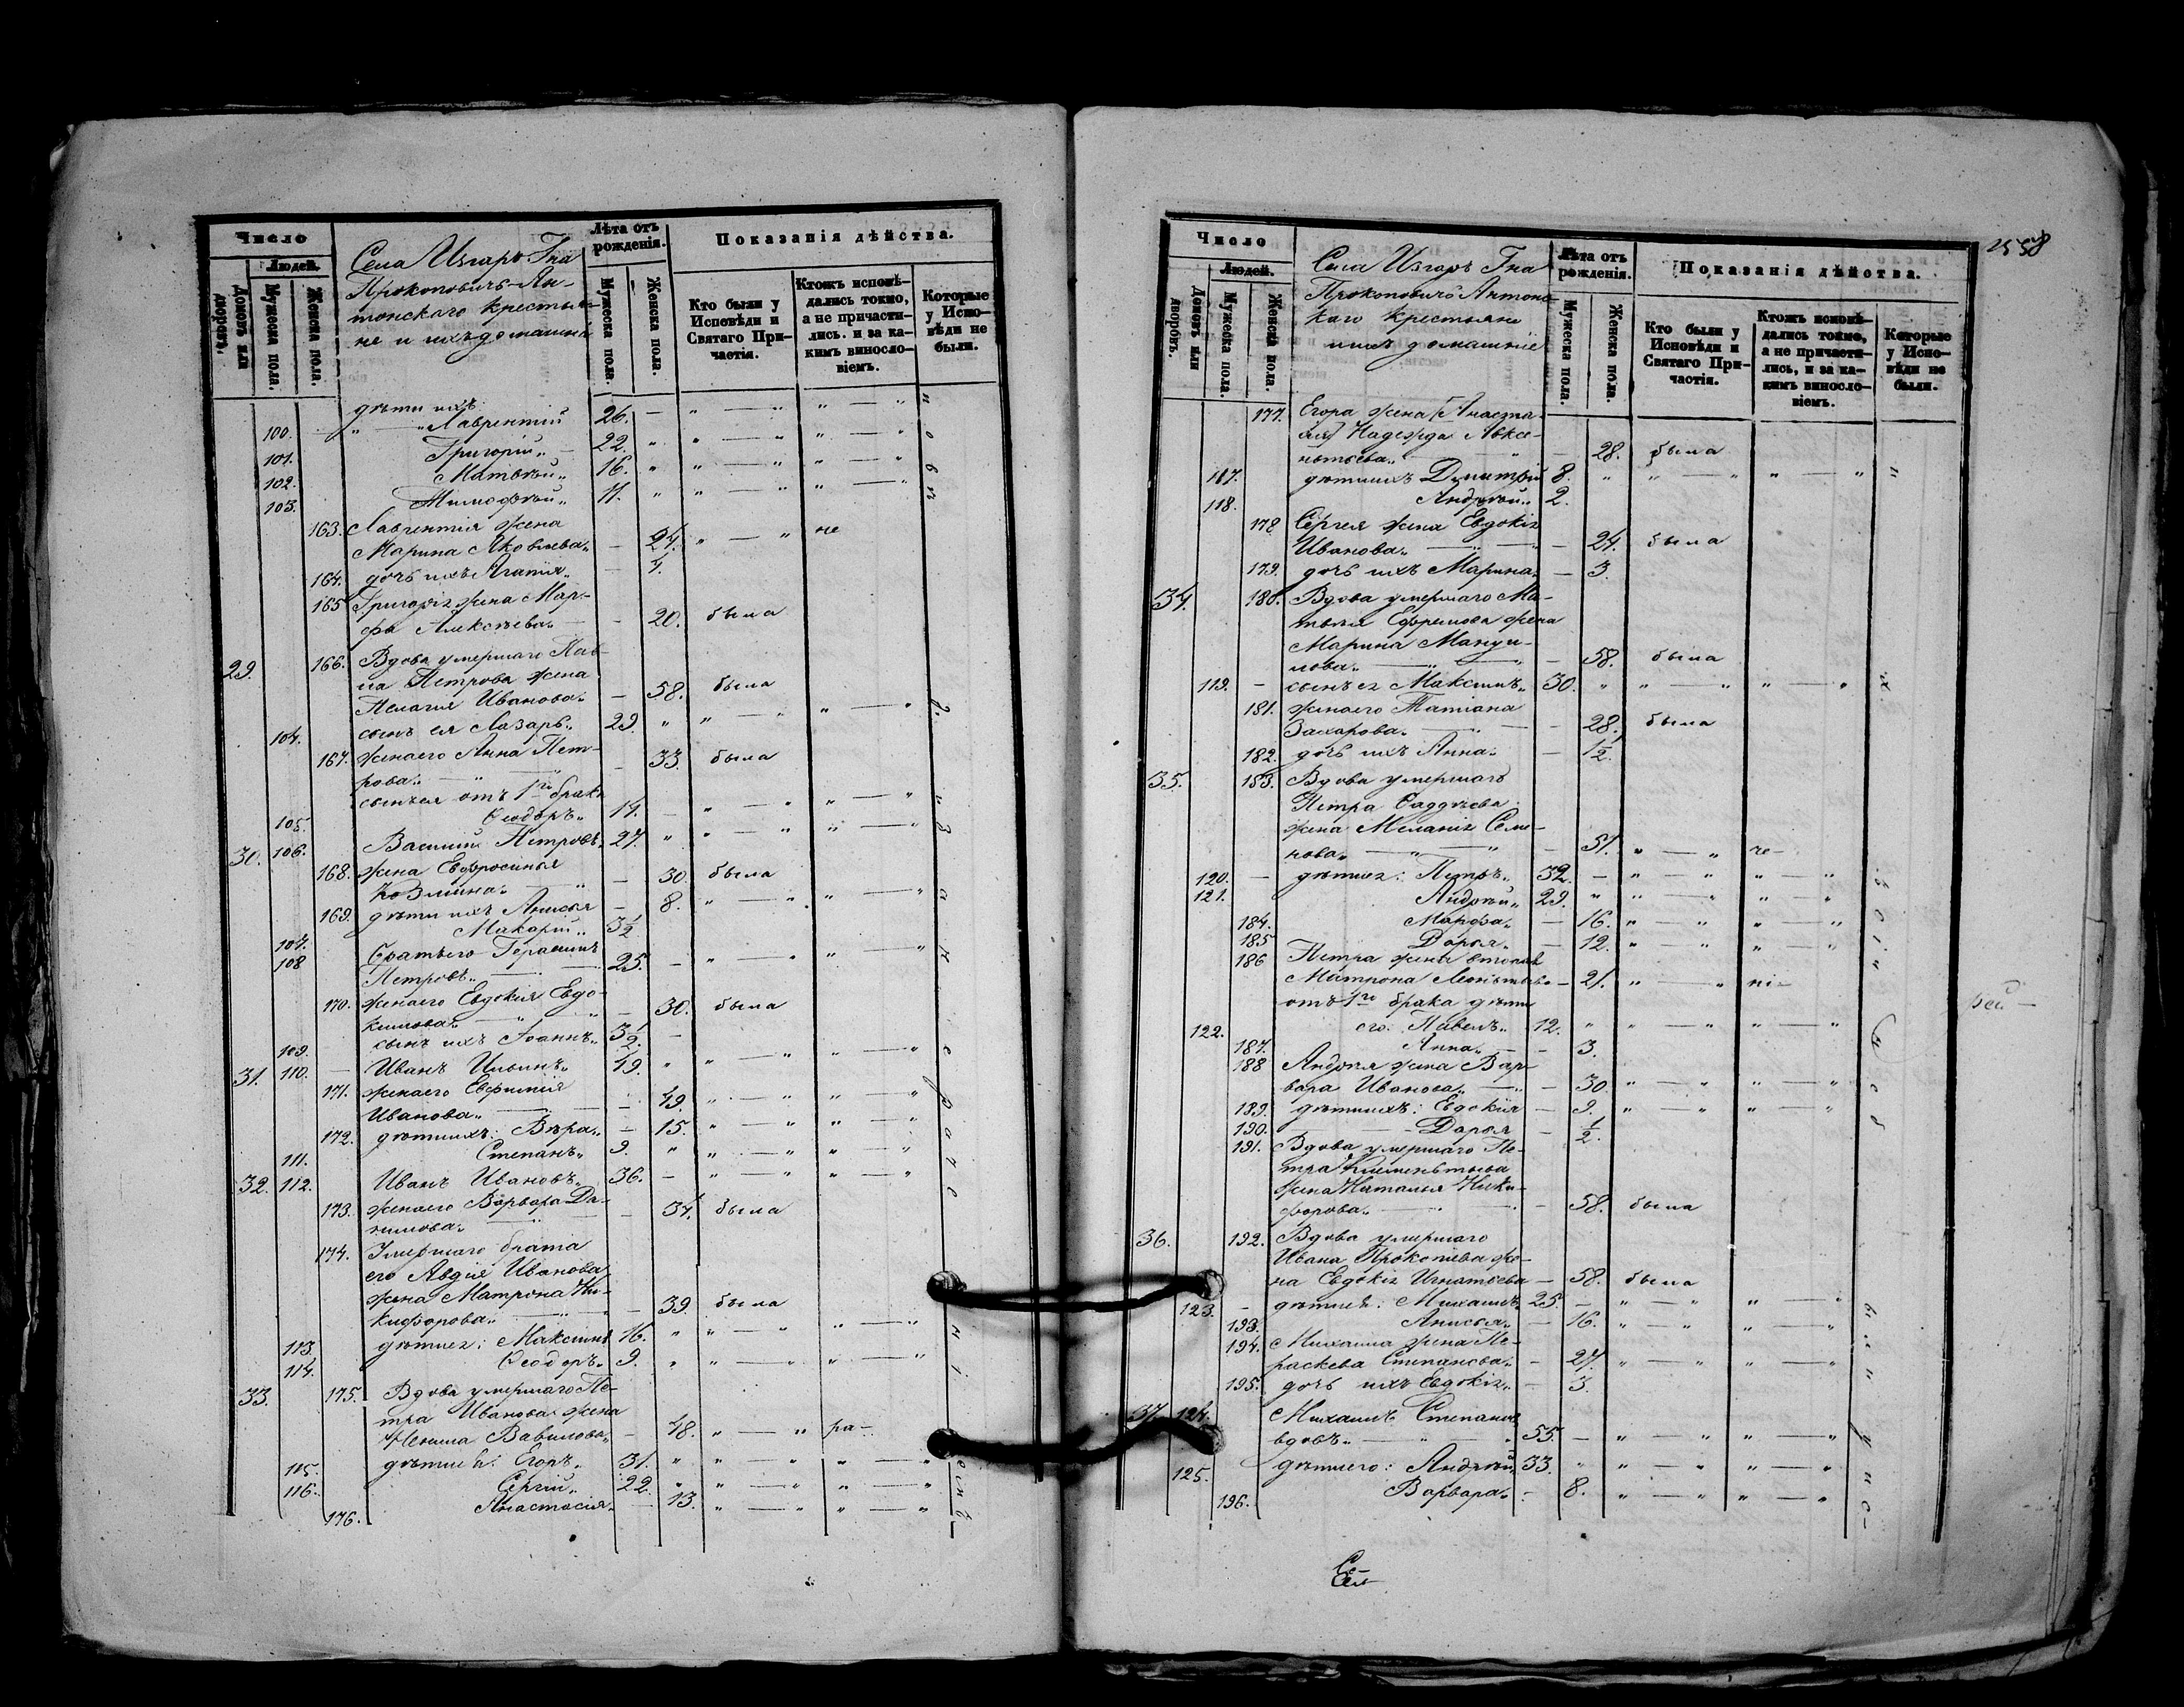 Число
Людей.
Домовъ или дворовъ.
Мужеска пола.
Женска пола.
Села Изгаръ Гна
Прокоповичъ-Ан-
тонскаго крестья-
не и ихъ домашніе
Лѣта отъ рожденія.
Мужеска пола.
Женска пола.
Показанія дѣйства.
Кто были у Исповѣди и Святаго Причастія.
Ктожъ исповѣдались токмо, а не причастились. и за какимъ винословіемъ.
Которые у Исповѣди не были.
дѣти ихъ
100. Лаврентій 26.
101. Григорій 22.
102. Матвѣй 16.
103. Тимофѣй 11.
163. Лаврентія жена
Марина Яковлева 24. не
164. дочь ихъ Агапія
165 Григорія жена Мар-
фа Алексѣева 20. была
29. 166. Вдова умершаго Пав-
ла Петрова жена
Пелагия Иванова 58. была
104. сынъ ея Лазарь 29.
167. жена его Анна Пет-
рова 33. была
сынъ ея отъ 1го брака
105. Ѳеодоръ 14.
30. 106. Василій Петровъ 27.
168. жена Евфросинья
Козмина 30. была
169. дѣти ихъ Анисья 8.
107. Макарій 3½
108 Братъ его Герасимъ
Петровъ 25.
170. жена его Евдокия Евдо-
кимова 30. была
109. сынъ ихъ Іоаннъ 3½.
31. 110. Иванъ Ильинъ 49.
171. жена его Евфимія
Иванова 49.
172. дѣти ихъ: Вѣра 15.
111. Степанъ 9.
32. 112. Иванъ Ивановъ 36.
173. жена его Варвара Да-
нилова 34. была
174. Умершаго брата
его Авдія Иванова
жена Матрона Ни-
кифорова 39 была
113. дѣти ея: Максимъ 16.
114. Ѳеодоръ 9.
33. 175. Вдова умершаго Пе-
тра Иванова жена
Вавилова 48. ра-
115. дѣти ея: Егоръ 31.
116. Сергій 22.
176. Анастасія 13.
2558
Число
Людей.
Домовъ или дворовъ.
Мужеска пола.
Женска пола.
Села Изгаръ Гна
Прокоповичъ Антонс
каго крестьяне
и ихъ домашніе
Лѣта отъ рожденія.
Мужеска пола.
Женска пола.
Показанія дѣйства.
Кто были у Исповѣди и Святаго Причастія.
Ктожъ исповѣдались токмо, а не причастились, и за какимъ винословіемъ.
Которые у Исповѣди не были.
177. Егора жена
Надежда Авксе-
нтьева 28. была
117. дѣти ихъ Димитрій 8.
118. Андрѣй 2.
178 Сергея жена Евдокія
Иванова 24. была
179. дочь ихъ Марина 3.
34. 180. Вдова умершаго Ма-
твѣя Ефремова жена
Марина Мануи-
лова 58. была
119. сынъ ея Максимъ 30.
181. жена его Татіана
Захарова 28. была
182. дочь ихъ Анна 1½.
35. 183. Вдова умершаго
Петра Фаддѣева
жена Меланія Семе-
нова 51. не-
120. дѣти ея: Петръ 32.
121. Андрѣй 29.
184. Марфа 16.
185 Дарья 12.
186 Петра жена вторая
Матрона 21.
отъ 1го брака дѣти
122. его: Павелъ 12.
187. Анна 3.
188 Андрѣя жена Вар-
вара Иванова 30.
189. дѣти ихъ: Евдокія 9.
190. Дарья ½.
191. Вдова умершаго Пе-
тра Климентьева
жена Наталья Ники-
форова 58. была
36. 192. Вдова умершаго
Ивана Прокопіева же-
на Евдокія Игнатьева 58. была
123. дѣти ея: Михаилъ 25.
193. Анисья 16.
194. Михаила жена Па-
раскева Степанова 27.
195. дочь ихъ Евдокія 3.
37. 124. Михаилъ Степановъ
вдовъ 55.
125. дѣти его: Андрѣй 33.
196. Варвара 8.